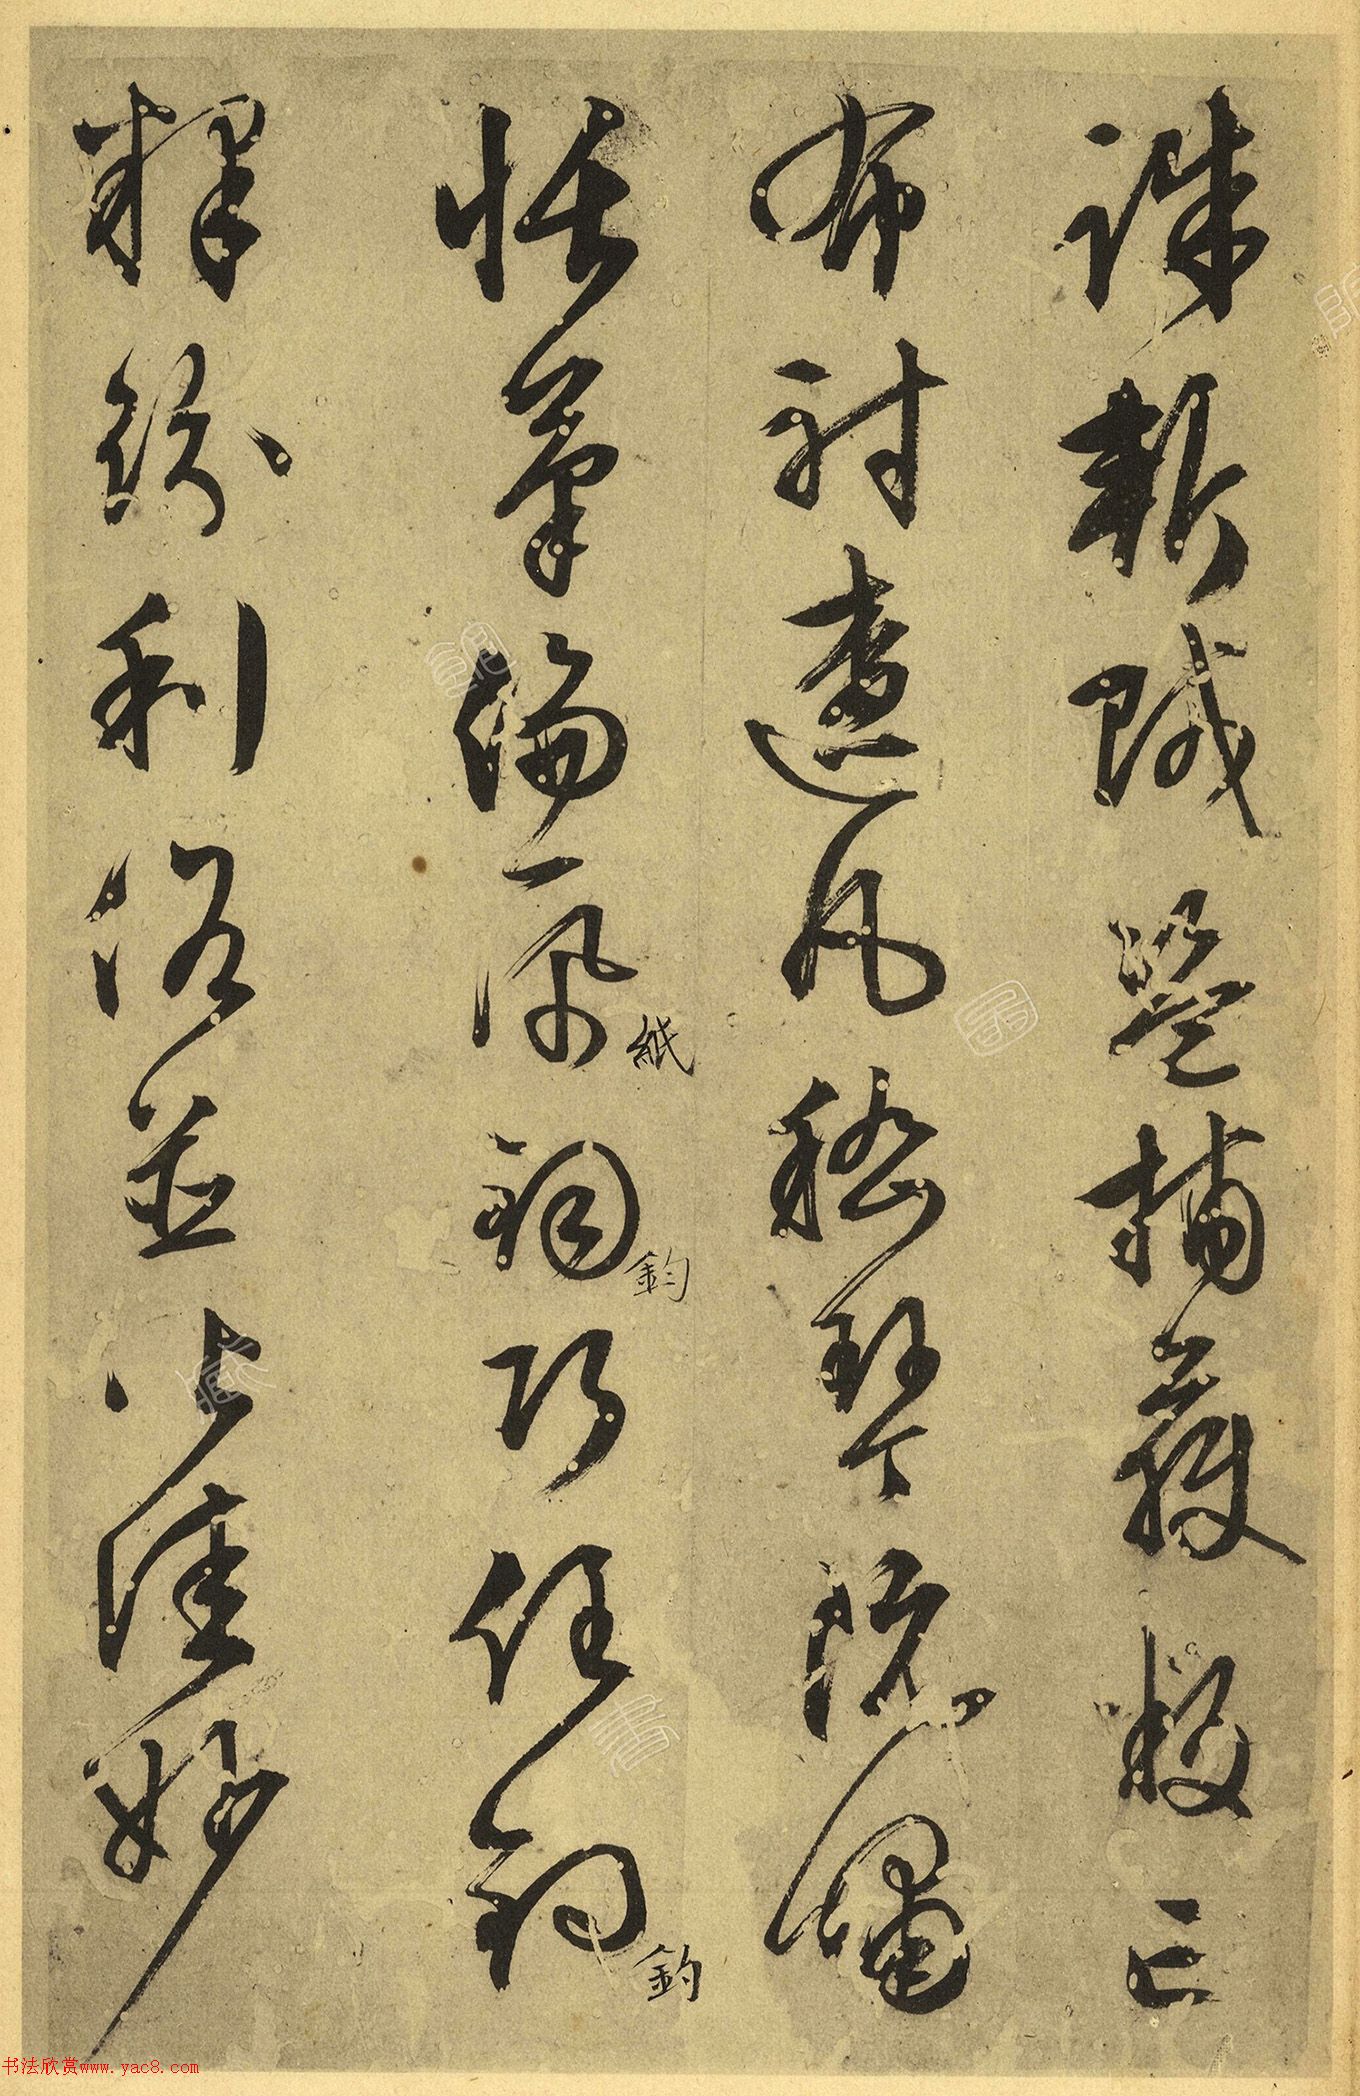 誅斬賊盜捕獲叛亡
布射遼丸嵇琴阮嘯
恬筆倫紙鈞巧任釣
紙
鈞
釣
釋紛利俗並皆佳妙
书法欣赏www.yac8.com